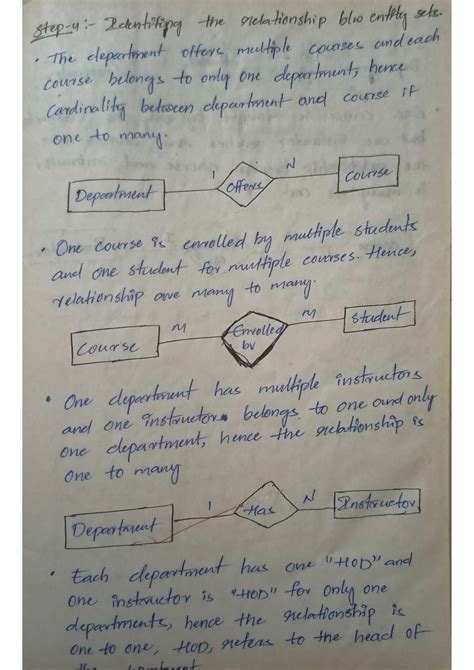 Step-4:- Identifing the relationship b/w entity sets.
• The department offers multiple courses and each
course belongs to only one department, hence
Cardinality between department and course if
one to many.
Department 1 Offers N Course
• One course is enrolled by multiple students
and one student for multiple courses. Hence,
relationship are many to many.
Course M Enrolled by M Student
• One department has multiple instructors
and one instructor belongs to one and only
one department, hence the relationship is
one to many
Department 1 Has N Instructor
• Each department has one "HOD" and
one instructor is "HOD" for only one
departments, hence the relationship is
one to one, HOD, refers to the head of
the department